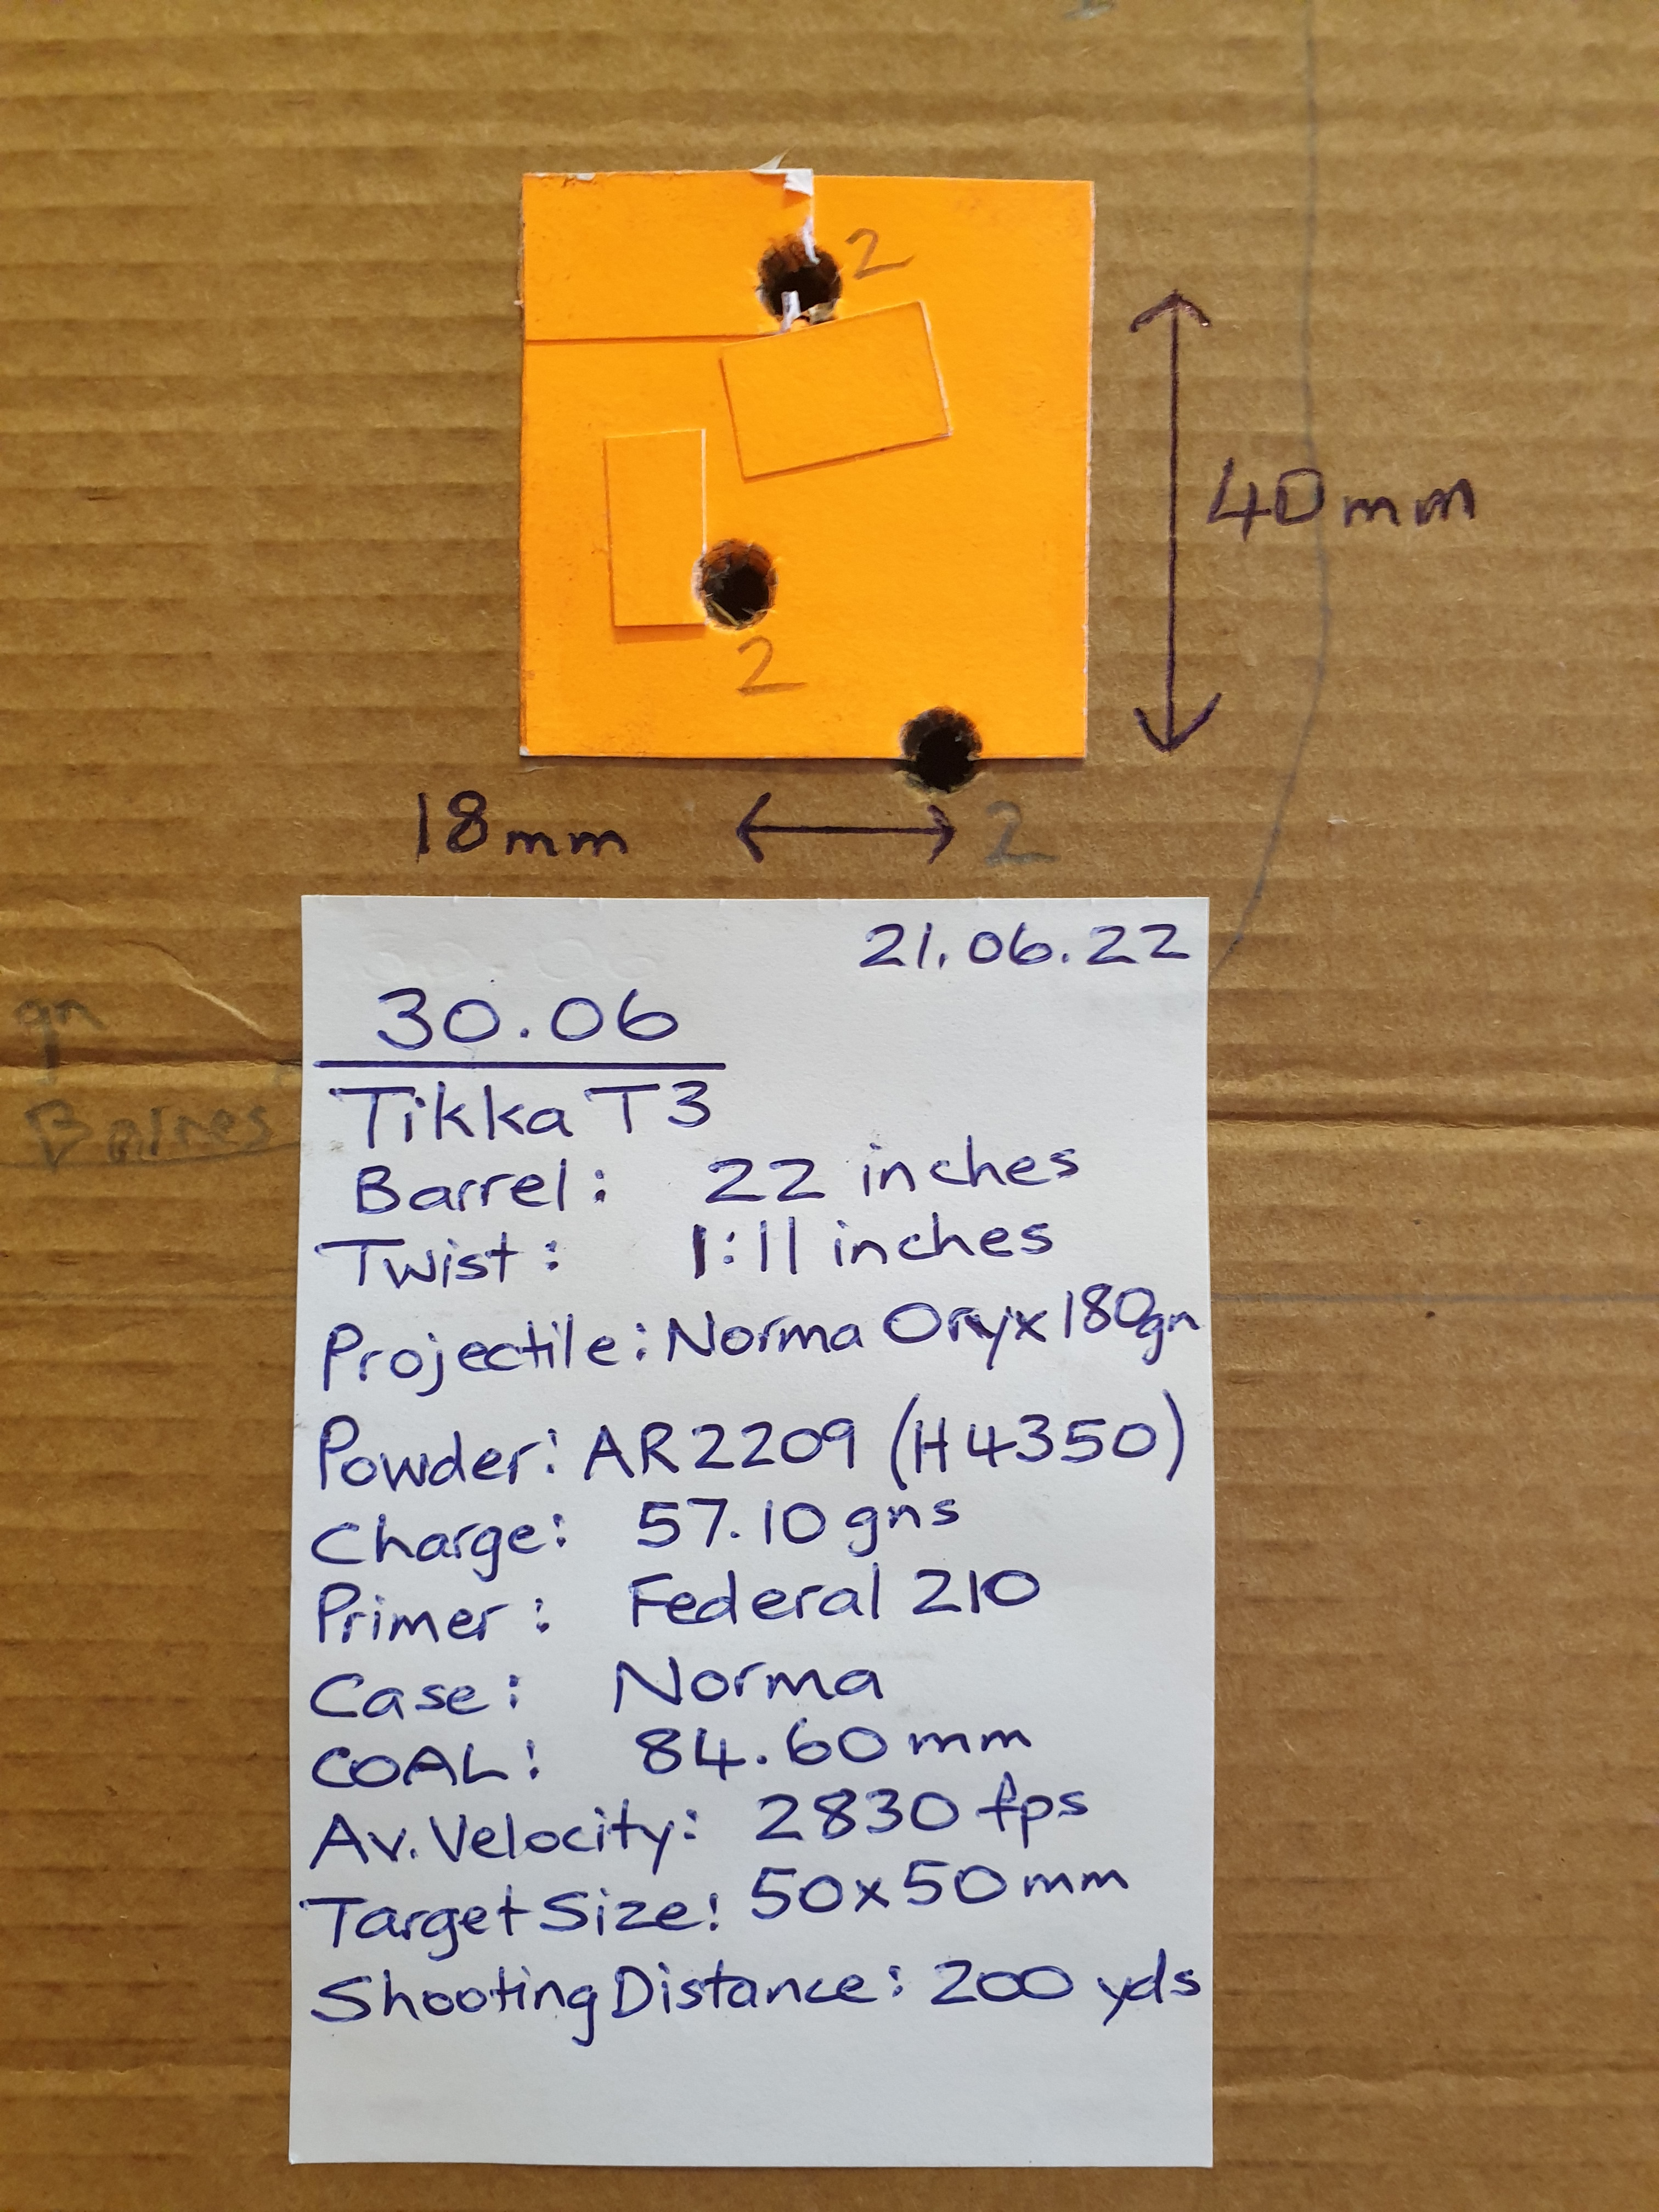 2
40mm
2
18mm
2
21.06.22
30.06
gn
Tikka T3
Barnes
Barrel: 22 inches
Twist: 1:11 inches
Projectile: Norma Oryx 180gn
Powder: AR2209 (H4350)
Charge: 57.10 gns
Primer: Federal 210
Case: Norma
COAL: 84.60 mm
Av. Velocity: 2830 fps
Target Size: 50x50mm
Shooting Distance: 200 yds